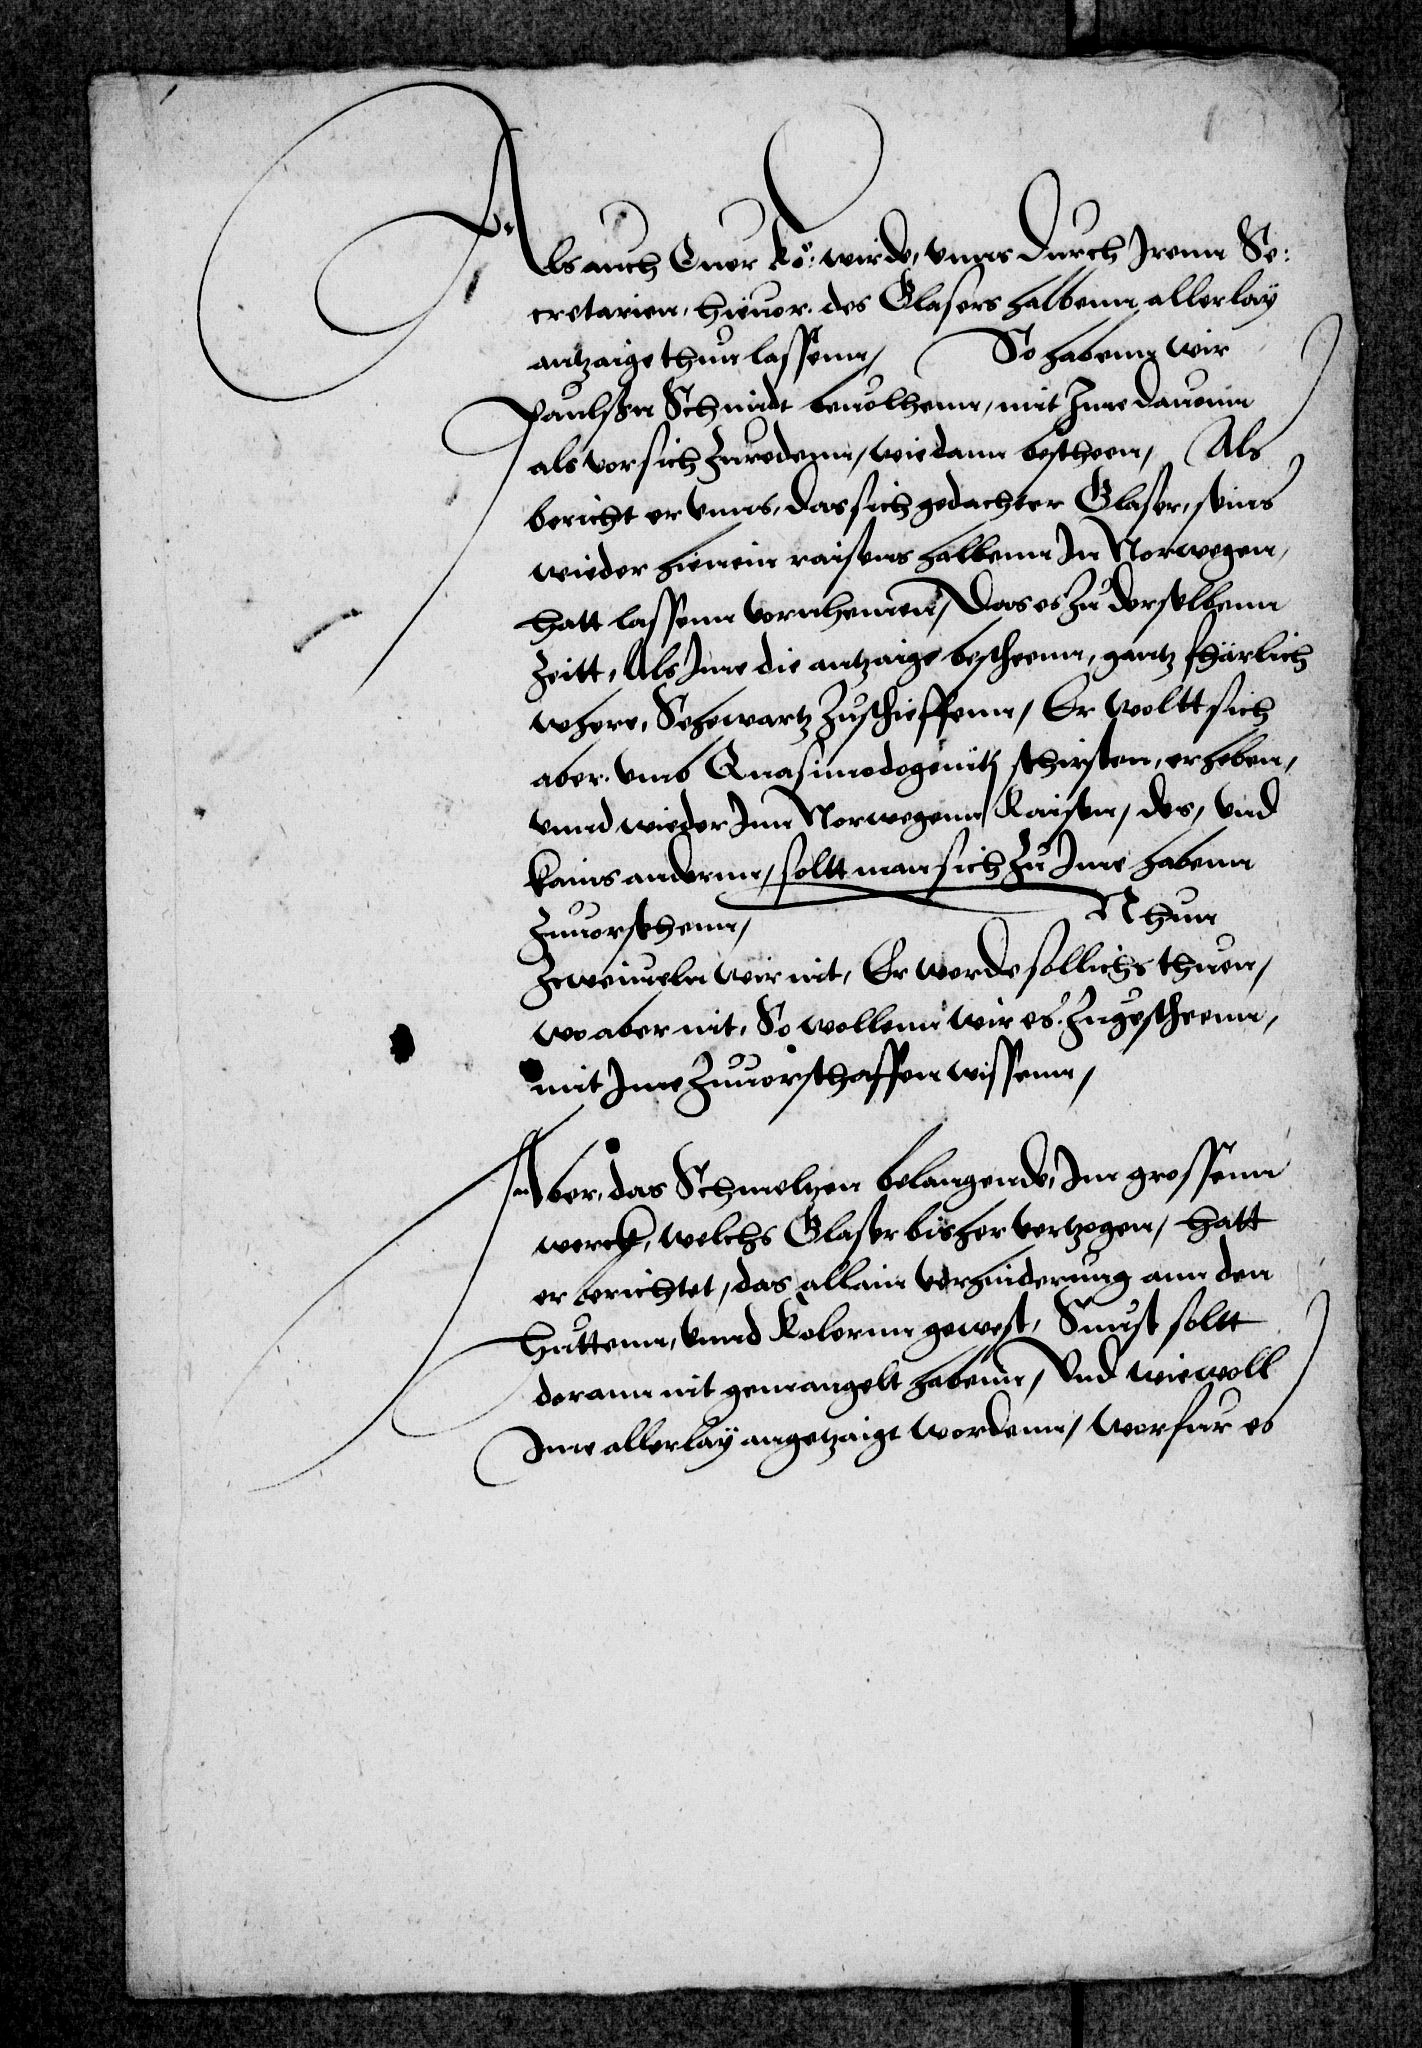 Als auch Euer Kö: wirde, vnns durch Jrenn Se:
cretarien, hieuor, des Glasers halbenn allerlay
antzaige thun lassenn, So habenn wir
Paulßen Schmidt beuolhenn, mit Jme dauonn
als vor sich zuredenn, wie dann bescheen, Als
bericht er vnns, das sich gedachter Glaser, seins
wieder hienein raisens halbenn Jn Norwegen,
hatt lassenn vornhemen, Das es zu derselbenn
Zeitt, Als Jme die antzaige bescheenn, gantz fharlich
where, Sehewartz zuschieffenn, Er woltt sich
aber, vmb Quasimodogenitj schirsten, erheben,
vnnd wieder Jnn Norwegenn Raisen, des, vnd
kains andernn, soltt man sich zu Jme habenn
zuuorsehenn, Nhun
zweiueln wir nit, Er werde sollichs thuen,
wo aber nit, So wollenn wir es, zugescheenn,
mit Jme zuuorschaffen wissenn,
Aber, das Schmeltzen belangende, Jm grossenn
werck, welchs Glaser bisher vertzogen, hatt
er berichtet, das allain verhinderung ann den
huttenn, vnnd Kolernn gewest, Sunst soltt
darann nit gemangelt habenn, Vnd wiewoll
Jme allerlay angetzaigt wordenn, worfur es